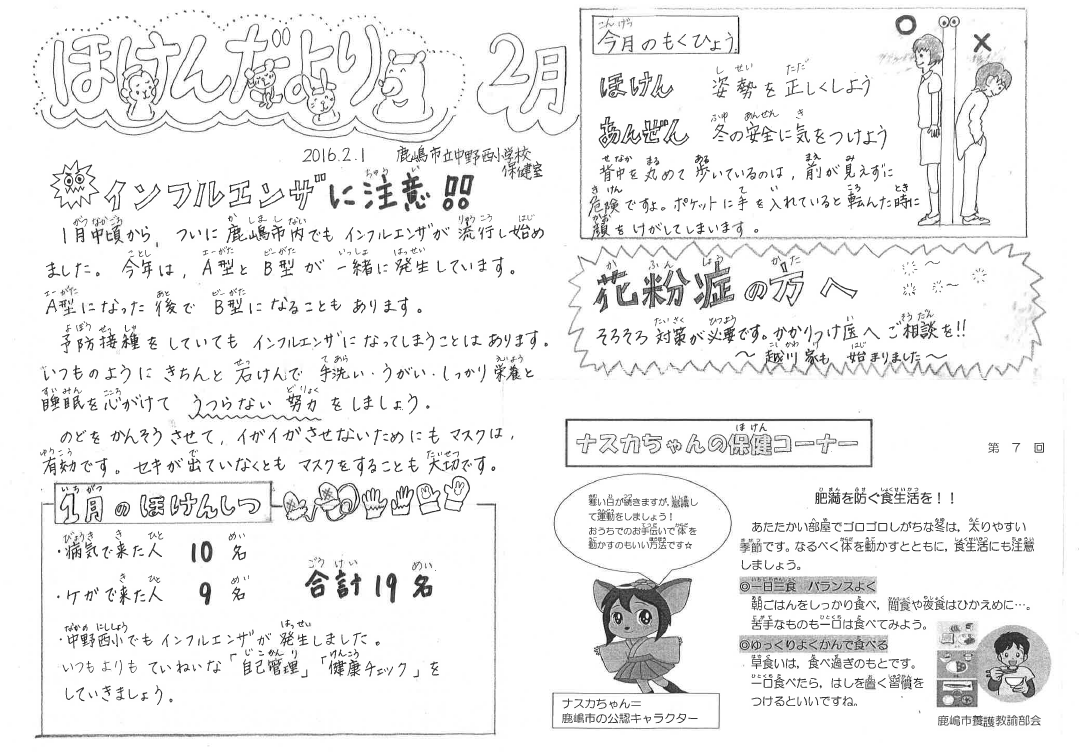 ほけんだより 2月
2016.2.1 鹿嶋市立中野西小学校
保健室
インフルエンザに注意!!
1月中頃から、ついに鹿嶋市内でもインフルエンザが流行し始め
ました。今年は、A型とB型が一緒に発生しています。
A型になった後でB型になることもあります。
予防接種をしていてもインフルエンザになってしまうことはあります。
いつものようにきちんと石けんで手洗い・うがい・しっかり栄養と
睡眠を心がけてうつらない努力をしましょう。
のどをかんそうさせて、イガイガさせないためにもマスクは、
有効です。セキが出ていなくともマスクをすることも大切です。
1月のほけんしつ
・病気で来た人 10名
・ケガで来た人 9名
合計19名
・中野西小でもインフルエンザが発生しました。
いつもよりもていねいな「自己管理」「健康チェック」を
していきましょう。
今月のもくひょう
ほけん 姿勢を正しくしよう
あんぜん 冬の安全に気をつけよう
背中を丸めて歩いているのは、前が見えずに
危険ですよ。ポケットに手を入れていると転んだ時に
顔をけがしてしまいます。
○ ×
花粉症の方へ
そろそろ対策が必要です。かかりつけ医へご相談を!!
～越川家も始まりました～
ナスカちゃんの保健コーナー
第 7 回
寒い日が続きますが、意識し
て運動をしましょう!
おうちでのお手伝いで体を
動かすのもいい方法です☆
ナスカちゃん＝
鹿嶋市の公認キャラクター
肥満を防ぐ食生活を！！
あたたかい部屋でゴロゴロしがちな冬は、太りやすい
季節です。なるべく体を動かすとともに、食生活にも注意
しましょう。
◎一日三食 バランスよく
朝ごはんをしっかり食べ、間食や夜食はひかえめに…。
苦手なものも一口は食べてみよう。
◎ゆっくりよくかんで食べる
早食いは、食べ過ぎのもとです。
一口食べたら、はしを置く習慣を
つけるといいですね。
鹿嶋市養護教諭部会